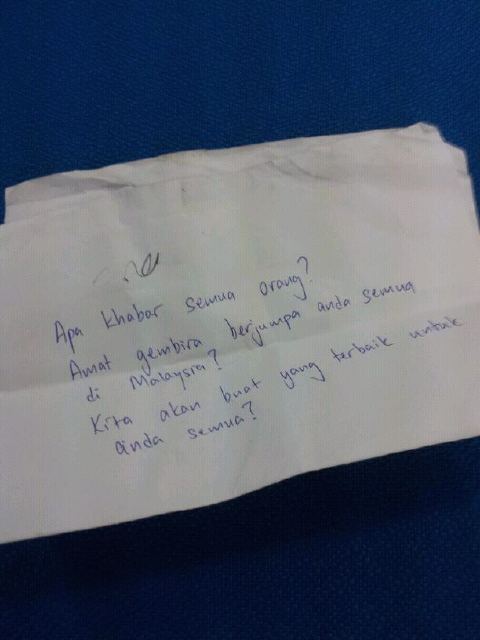 Apa khabar semua orang?
Amat gembira berjumpa anda semua
di Malaysia?
Kita akan buat yang terbaik untuk
anda semua?